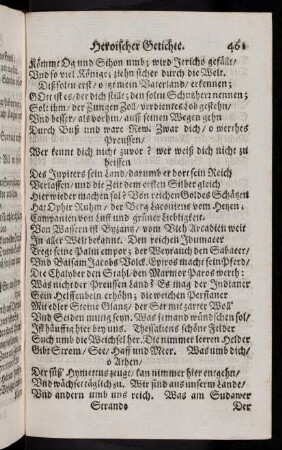 Heroischer Getichte. 461
Kömmt Og und Sihon umb; wird Jericho gefälle/
Und so viel Könige; ziehn sicher durch die Welt.
Diß soltu erst / o itzt mein Vaterland / erkennen;
GOtt ist es / der dich stillt; den soltu Schutzherr nennen;
Solt ihm / der Zungen Zoll / verdientes Lob gestehn/
Und besser / als vorhin / auff seinen Wegen gehn
Durch Buß und ware Rew. Zwar dich / o werthes
Preussen.
Wer kennt dich nicht zuvor? wer weiß dich nicht zu
heissen
Des Jupiters sein Land / darumb er dort sein Reich
Verlassen / und die Zeit dem ersten Silber gleich
Hier wieder machen sol? Von reichen Goldes Schätzen
Hat Ophir Ruhm / der Berg Laconiens vom Hetzen:
Campanien von Lust und grüner Liebligkeit.
Von Wassern ist Byzanz / vom Vieh Arcadien weit
In aller Welt bekannt. Den reichen Idumaeer
Tregt seine Palm empor; der Weyrauch den Sabaeer/
Und Balsam Jacobs Volck. Epyrus macht sein Pferd/
Die Chalyber den Stahl / den Marmor Paros werth:
Was nicht der Preussen Land? Es mag der Indianer
Sein Helffenbein erhöhn; die weichen Persianer
Mit edler Steine Glantz / der Ser mit zarter Woll'
Und Seiden mutig seyn. Was jemand wündschen sol/
Ist häuffig hier bey uns. Thessaliens schöne Felder
Such umb die Weichsel her. Die nimmer leeren Helder
Gibt Strom / See / Haff und Meer. Was umb dich/
o Athen/
Der süß' Hymettus zeugt / kan nimmer hier entgehn/
Und wächset täglich zu. Wir sind aus unserm Lande/
Und andern umb uns reich. Was am Sudawer
Strande
Der